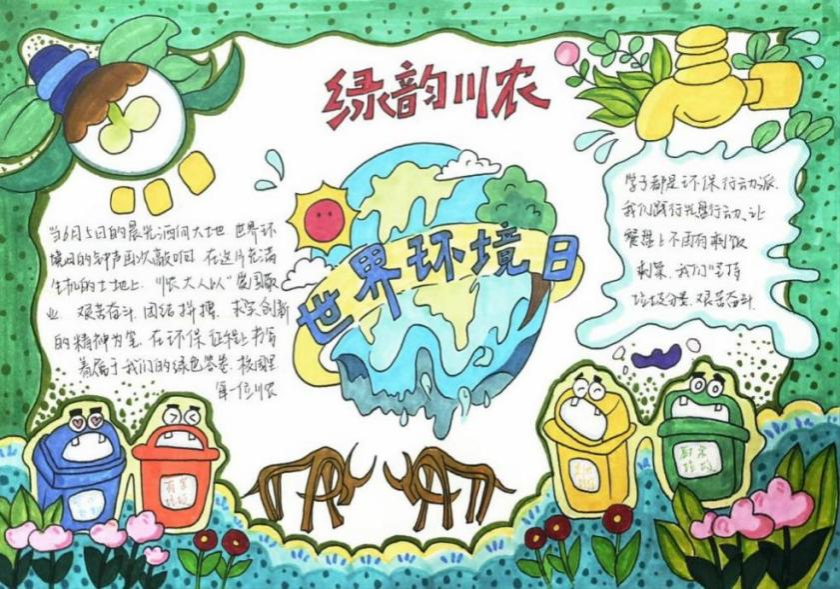 绿韵川农
世界环境日
当6月5日的晨光洒向大地 世界环
境日的钟声再次敲响. 在这片充满
生机的土地上. “川农大人以”爱国敬
业. 艰苦奋斗. 团结拼搏. 求实创新
的精神为笔. 在环保征程上书写
着属于我们的绿色答卷. 校园里
每一位川农
学子都是环保行动派.
我们践行光盘行动、让
餐盘上不再有剩饭
剩菜. 我们坚持
垃圾分类. 艰苦奋斗.
有害
垃圾
厨余
垃圾